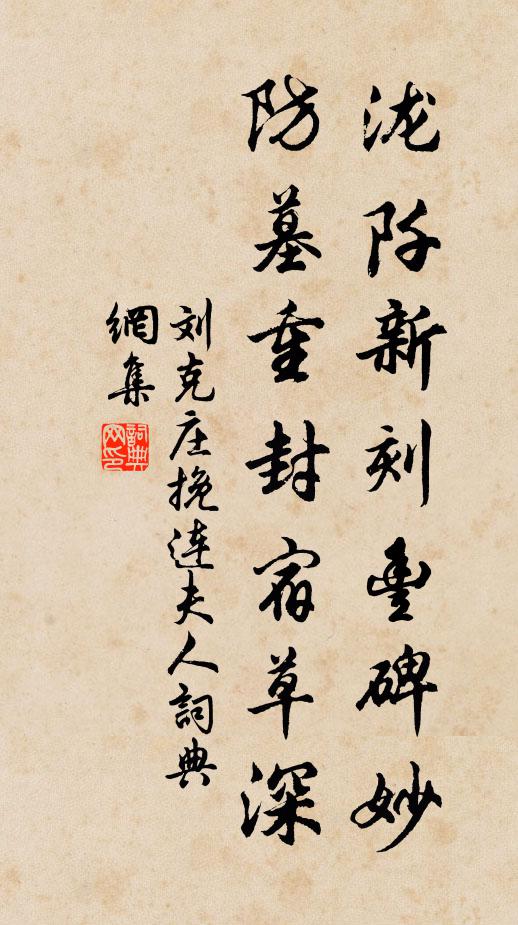 泷阡新刻丰碑妙
防墓重封宿草深
刘克庄挽连夫人詞典
網集
詞典網印